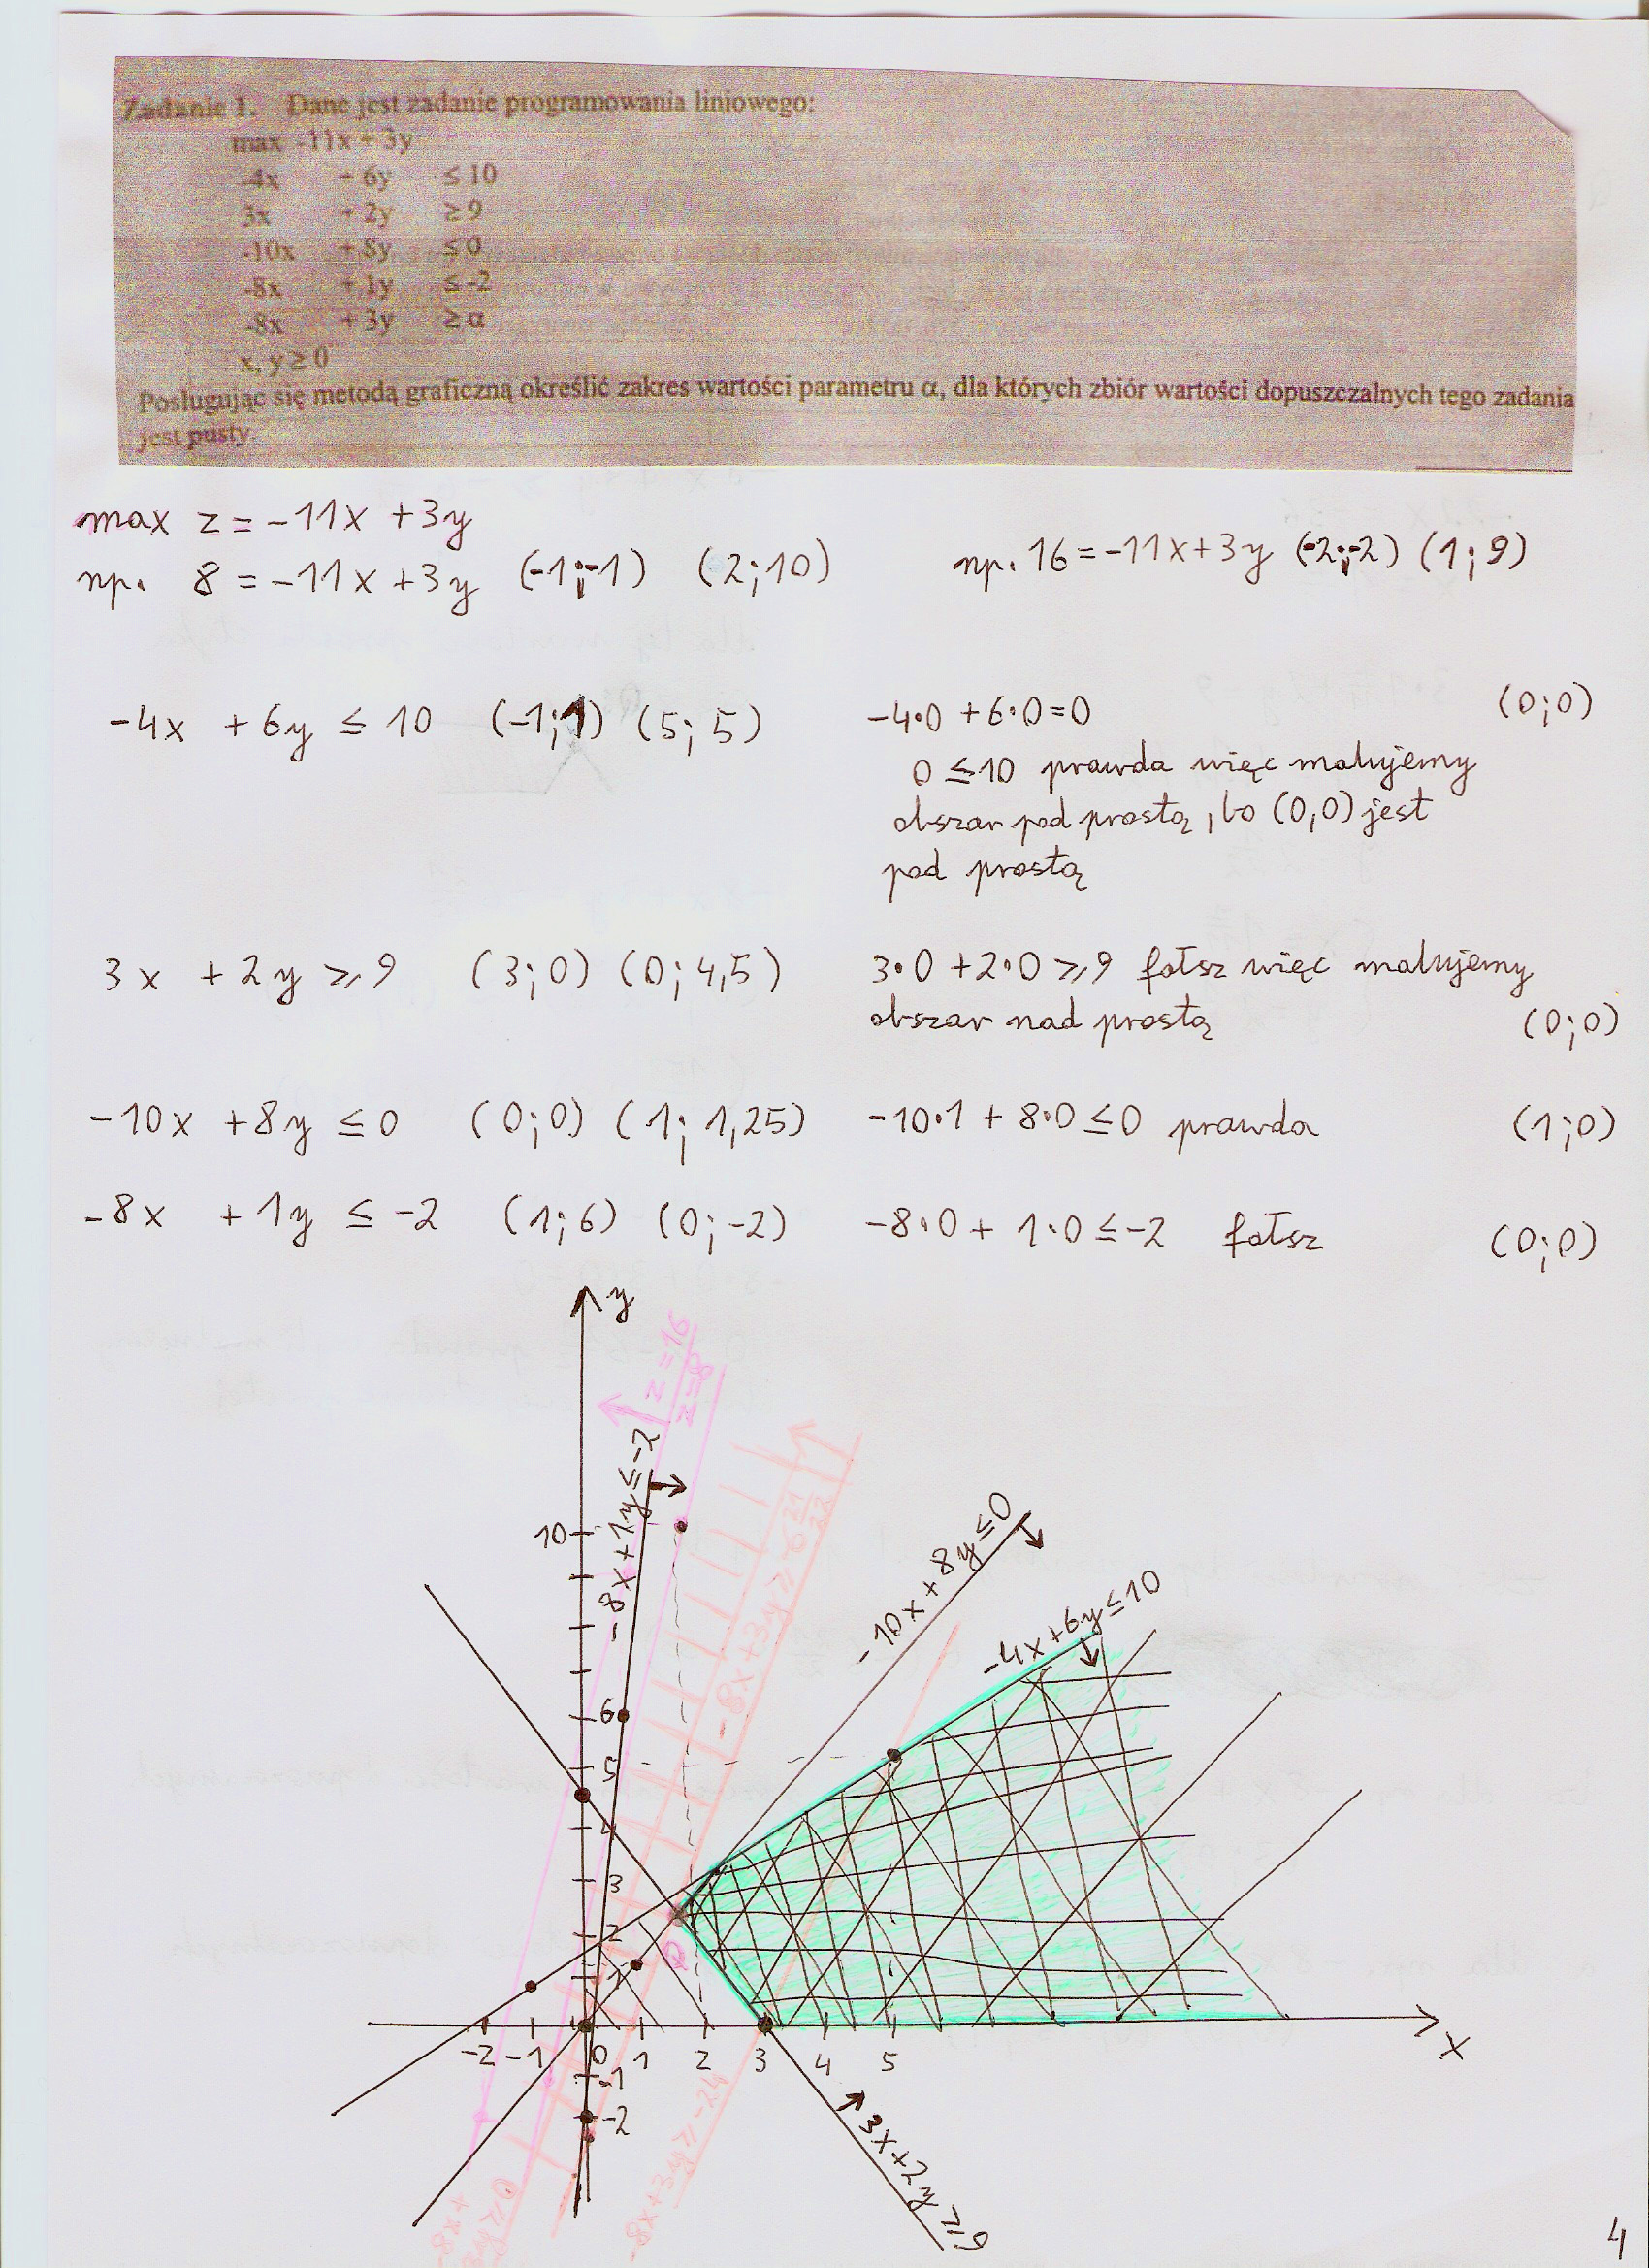 Zadanie 1. Dane jest zadanie programowania liniowego:
max -11x + 3y
-4x + 6y ≤ 10
3x + 2y ≥ 9
-10x + 8y ≤ 0
-8x + 1y ≤ -2
-8x + 3y ≥ α
x, y ≥ 0
Posługując się metodą graficzną określić zakres wartości parametru α, dla których zbiór wartości dopuszczalnych tego zadania
jest pusty.
max z = -11x + 3y
np. 8 = -11x + 3y (-1;-1) (2;10) np. 16 = -11x + 3y (-2;-2) (1;9)
-4x + 6y ≤ 10 (-1;1) (5;5) -4·0 + 6·0 = 0 (0;0)
0 ≤ 10 prawda więc malujemy
obszar pod prostą, bo (0,0) jest
pod prostą
3x + 2y ≥ 9 (3;0) (0;4,5) 3·0 + 2·0 ≥ 9 fałsz więc malujemy
obszar nad prostą (0;0)
-10x + 8y ≤ 0 (0;0) (1;1,25) -10·1 + 8·0 ≤ 0 prawda (1;0)
-8x + 1y ≤ -2 (1;6) (0;-2) -8·0 + 1·0 ≤ -2 fałsz (0;0)
y
z = 16
z = 8
-8x + 1y ≤ -2
-10x + 8y ≤ 0
-4x + 6y ≤ 10
10
6
5
4
3
2
1
Q
-2 -1 0 1 2 3 4 5 x
-1
-2
3x + 2y ≥ 9
-8x + 3y ≥ -24
-8x +
3y ≥ 0
4